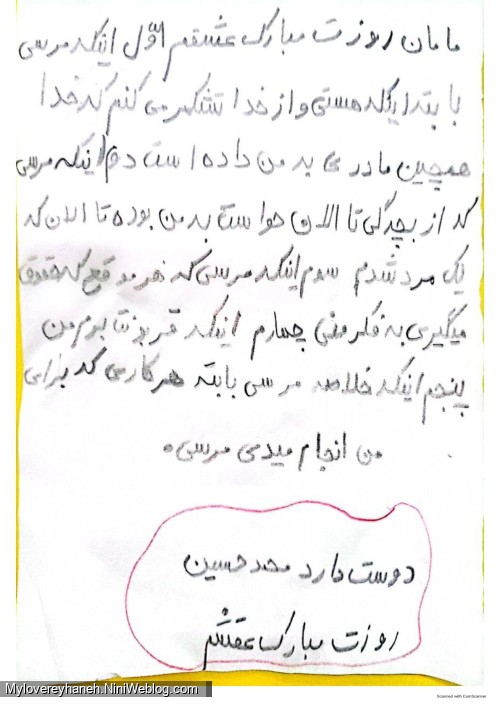 مامان روزت مبارک عشقم اوّل اینکه مرسی
بابته اینکه هستی و از خدا تشکر می کنم که خدا
همچین مادری به من داده است دوم اینکه مرسی
که از بچگی تا الان حواست به من بوده تا الان که
یک مرد شدم سوم اینکه مرسی که هر موقع که حقوق
میگیری به فکر منی چهارم اینکه قربونت برم من
پنجم اینکه خلاصه مرسی بابته هر کاری که برای
من انجام میدی مرسی.
دوست دارد محمد حسین
روزت مبارک عقشم
Mylovereyhaneh.NiniWeblog.com
Scanned with CamScanner